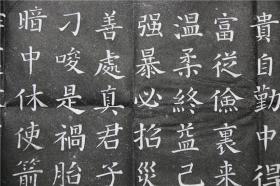 貴自勤中得
富從儉裏来
温柔終益己
强暴必招災
善處真君子
刁唆是禍胎
暗中休使箭